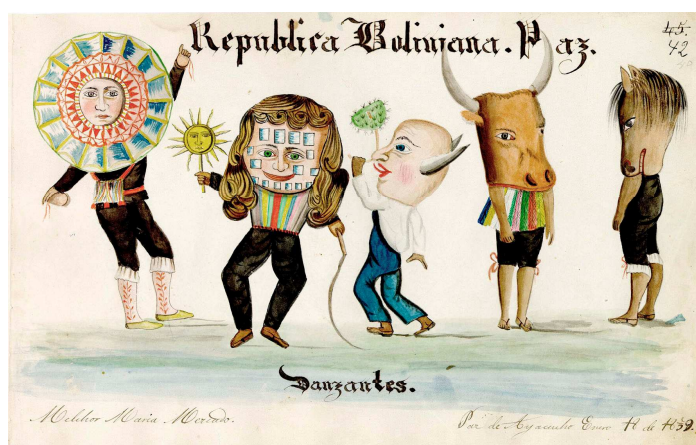 Republica Boliviana. Paz.
45.
42
Danzantes.
Melchor Maria Mercado.
Paz de Ayacucho Enero de